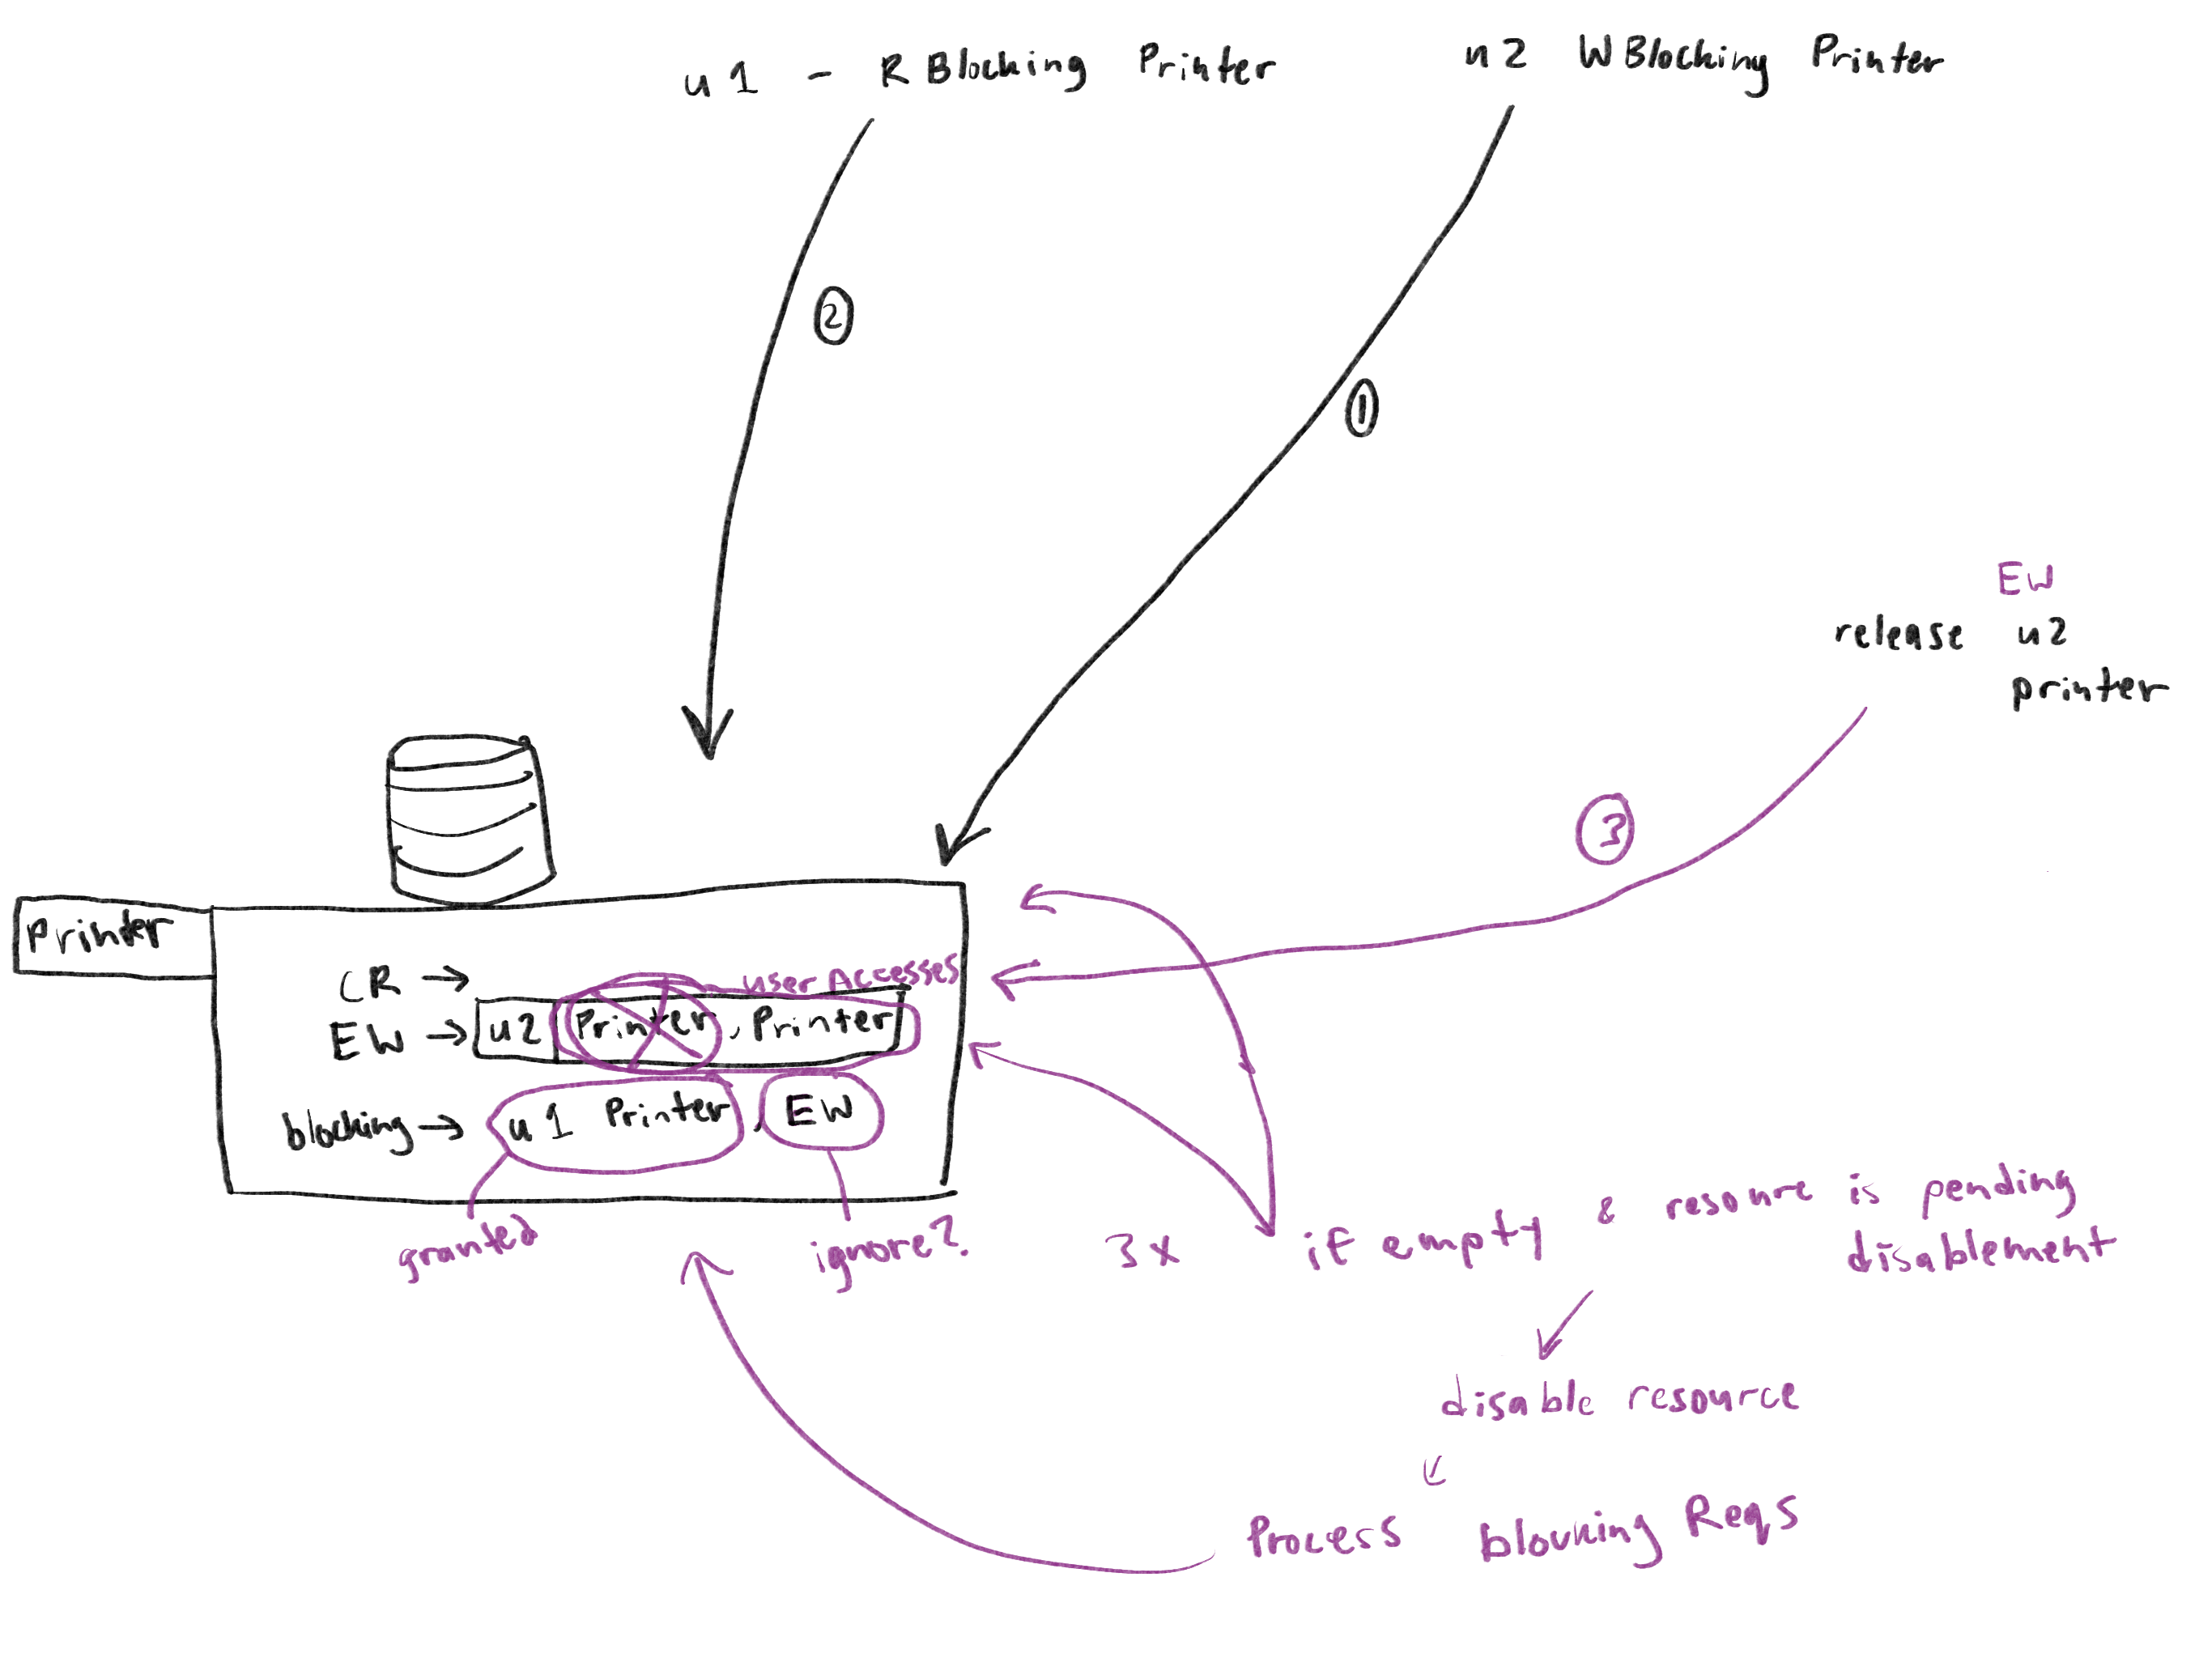 u1 - R Blocking Printer
u2 W Blocking Printer
2
1
EW
release u2
printer
3
Printer
CR → user Accesses
EW → u2 Printer, Printer
blocking → u1 Printer, EW
granted
ignore?
3x
if empty & resource is pending
disablement
disable resource
Process blocking Reqs